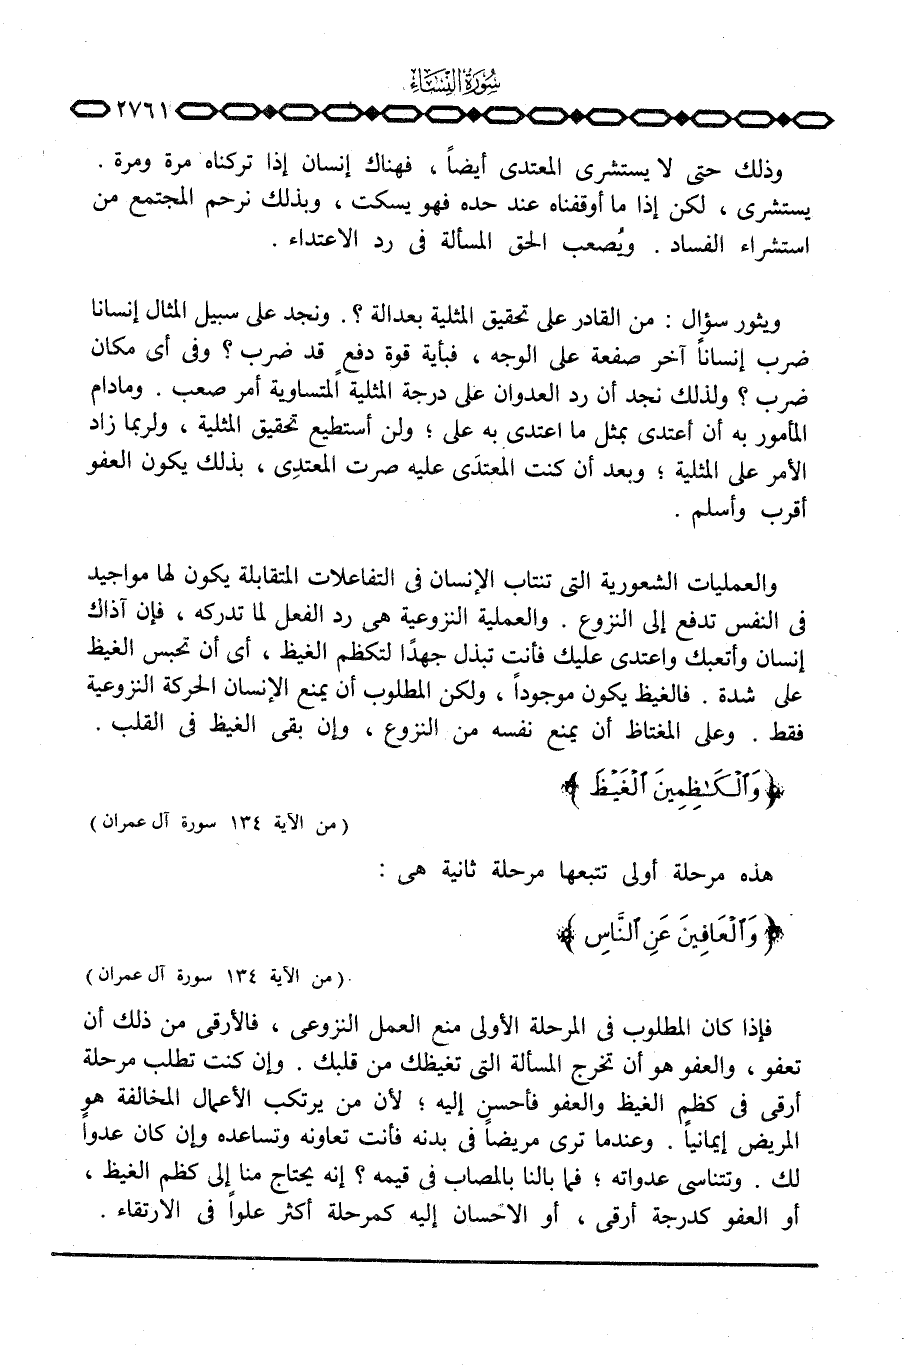 سورة النساء
٢٧٦١
وذلك حتى لا يستشرى المعتدى أيضاً ، فهناك إنسان إذا تركناه مرة ومرة .
يستشرى ، لكن إذا ما أوقفناه عند حده فهو يسكت ، وبذلك نرحم المجتمع من
استشراء الفساد . ويُصعب الحق المسألة فى رد الاعتداء .
ويثور سؤال : من القادر على تحقيق المثلية بعدالة ؟ . ونجد على سبيل المثال إنسانا
ضرب إنساناً آخر صفعة على الوجه ، فبأية قوة دفع قد ضرب ؟ وفى أى مكان
ضرب ؟ ولذلك نجد أن رد العدوان على درجة المثلية المتساوية أمر صعب . ومادام
المأمور به أن أعتدى بمثل ما اعتدى به على ؛ ولن أستطيع تحقيق المثلية ، ولربما زاد
الأمر على المثلية ؛ وبعد أن كنت المعتدَى عليه صرت المعتدِى ، بذلك يكون العفو
أقرب وأسلم .
والعمليات الشعورية التى تنتاب الإنسان فى التفاعلات المتقابلة يكون لها مواجيد
فى النفس تدفع إلى النزوع . والعملية النزوعية هى رد الفعل لما تدركه ، فإن آذاك
إنسان وأتعبك واعتدى عليك فأنت تبذل جهدًا لتكظم الغيظ ، أى أن تحبس الغيظ
على شدة . فالغيظ يكون موجوداً ، ولكن المطلوب أن يمنع الإنسان الحركة النزوعية
فقط . وعلى المغتاظ أن يمنع نفسه من النزوع ، وإن بقى الغيظ فى القلب .
﴿ وَٱلْكَـٰظِمِينَ ٱلْغَيْظَ ﴾
( من الآية ١٣٤ سورة آل عمران )
هذه مرحلة أولى تتبعها مرحلة ثانية هى :
﴿ وَٱلْعَافِينَ عَنِ ٱلنَّاسِ ﴾
( من الآية ١٣٤ سورة آل عمران )
فإذا كان المطلوب فى المرحلة الأولى منع العمل النزوعى ، فالأرقى من ذلك أن
تعفو ، والعفو هو أن تخرج المسألة التى تغيظك من قلبك . وإن كنت تطلب مرحلة
أرقى فى كظم الغيظ والعفو فأحسن إليه ؛ لأن من يرتكب الأعمال المخالفة هو
المريض إيمانياً . وعندما ترى مريضاً فى بدنه فأنت تعاونه وتساعده وإن كان عدواً
لك . وتتناسى عدواته ؛ فما بالنا بالمصاب فى قيمه ؟ إنه يحتاج منا إلى كظم الغيظ ،
أو العفو كدرجة أرقى ، أو الاحسان إليه كمرحلة أكثر علواً فى الارتقاء .